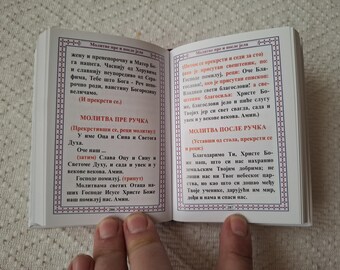 Молитве пре и после јела
жену и пренепорочну и Матер Бо-
га нашега. Часнију од Херувима
и славнију неупоредиво од Сера-
фима, Тебе што Бога - Реч непо-
рочно роди, ваистину Богородицу
величамо.
(И прекрсти се.)
МОЛИТВА ПРЕ РУЧКА
(Прекрстивши се, реци молитву:)
У име Оца и Сина и Светога
Духа.
Оче наш ...
(затим) Слава Оцу и Сину и
Светоме Духу, и сада и увек и у
векове векова. Амин.
Господе помилуј, (трипут)
Молитвама светих Отаца на-
ших Господе Исусе Христе Боже
наш помилуј нас. Амин.
Молитве пре и после јела
(Молитву прекрсти и седи за сто)
(ако је присутан свештеник, по-
сле Господе помилуј, реци: Оче Бла-
Господе помилуј, реци: Оче
ако је присутан епископ:
Владико свети благослови! а све-
благосиља: Христе Бо-
же, благослови јело и пиће слугу
Твојих јер си свет, свагда, сада и
увек и у векове векова. Амин.
МОЛИТВА ПОСЛЕ РУЧКА
(Уставши од стола, прекрсти се
и реци:)
Благодаримо Ти, Христе Бо-
же наш, што си нас нахранио
земаљским Твојим добрима; не
лиши нас ни Твог небеског цар-
ства, но као што си дошао међу
Твоје ученике, дарујући им мир,
дођи и нама и спаси нас.